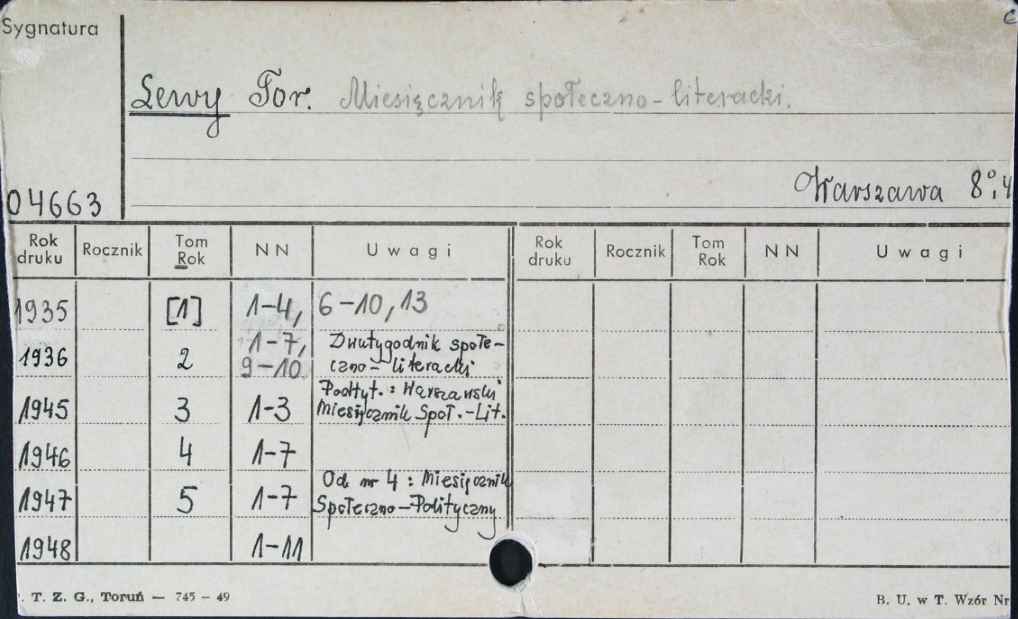 Sygnatura
Lewy Tor. Miesięcznik społeczno-literacki.
Warszawa 8°,4
04663
Rok druku Rocznik Tom Rok NN Uwagi Rok druku Rocznik Tom Rok NN Uwagi
1935 [1] 1-4, 6-10, 13
1936 2 1-7, 9-10 Dwutygodnik społe-
czno-literacki
1945 3 1-3 Podtyt.: Warszawski
Miesięcznik Społ.-Lit.
1946 4 1-7
1947 5 1-7 Od nr 4: Miesięcznik
Społeczno-Polityczny
1948 1-11
. T. Z. G., Toruń — 745 - 49
B. U. w T. Wzór Nr